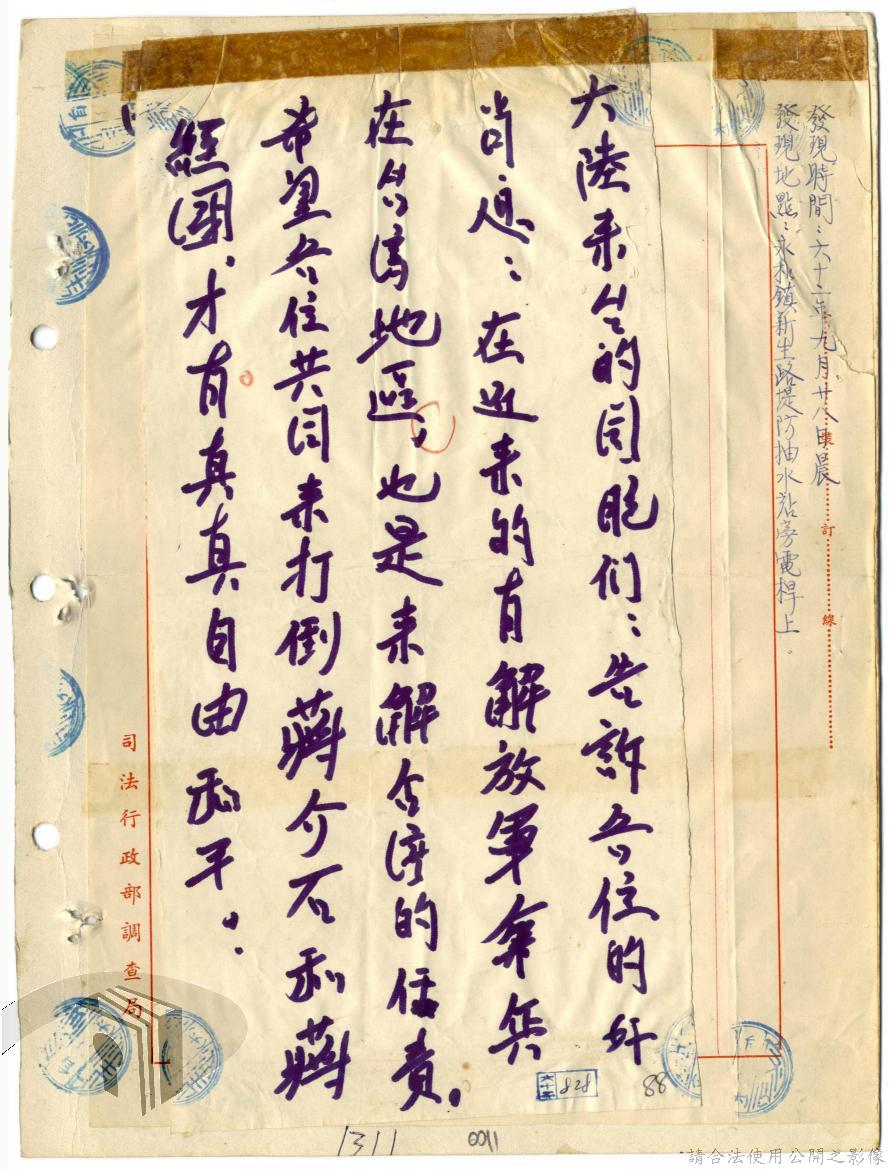 發現時間：六十二年九月廿八日晨
發現地點：永和鎮新生路堤防抽水站旁電桿上。
裝訂線
大陸来台的同胞们：告訴各位的好
尚息：在近来的有解放軍傘兵
在台湾地區，也是来解台湾的任責。
希望各位共同来打倒蔣介石和蔣
經國，才有真真自由和平。
司法行政部調查局
828
88
1311
0011
請合法使用公開之影像